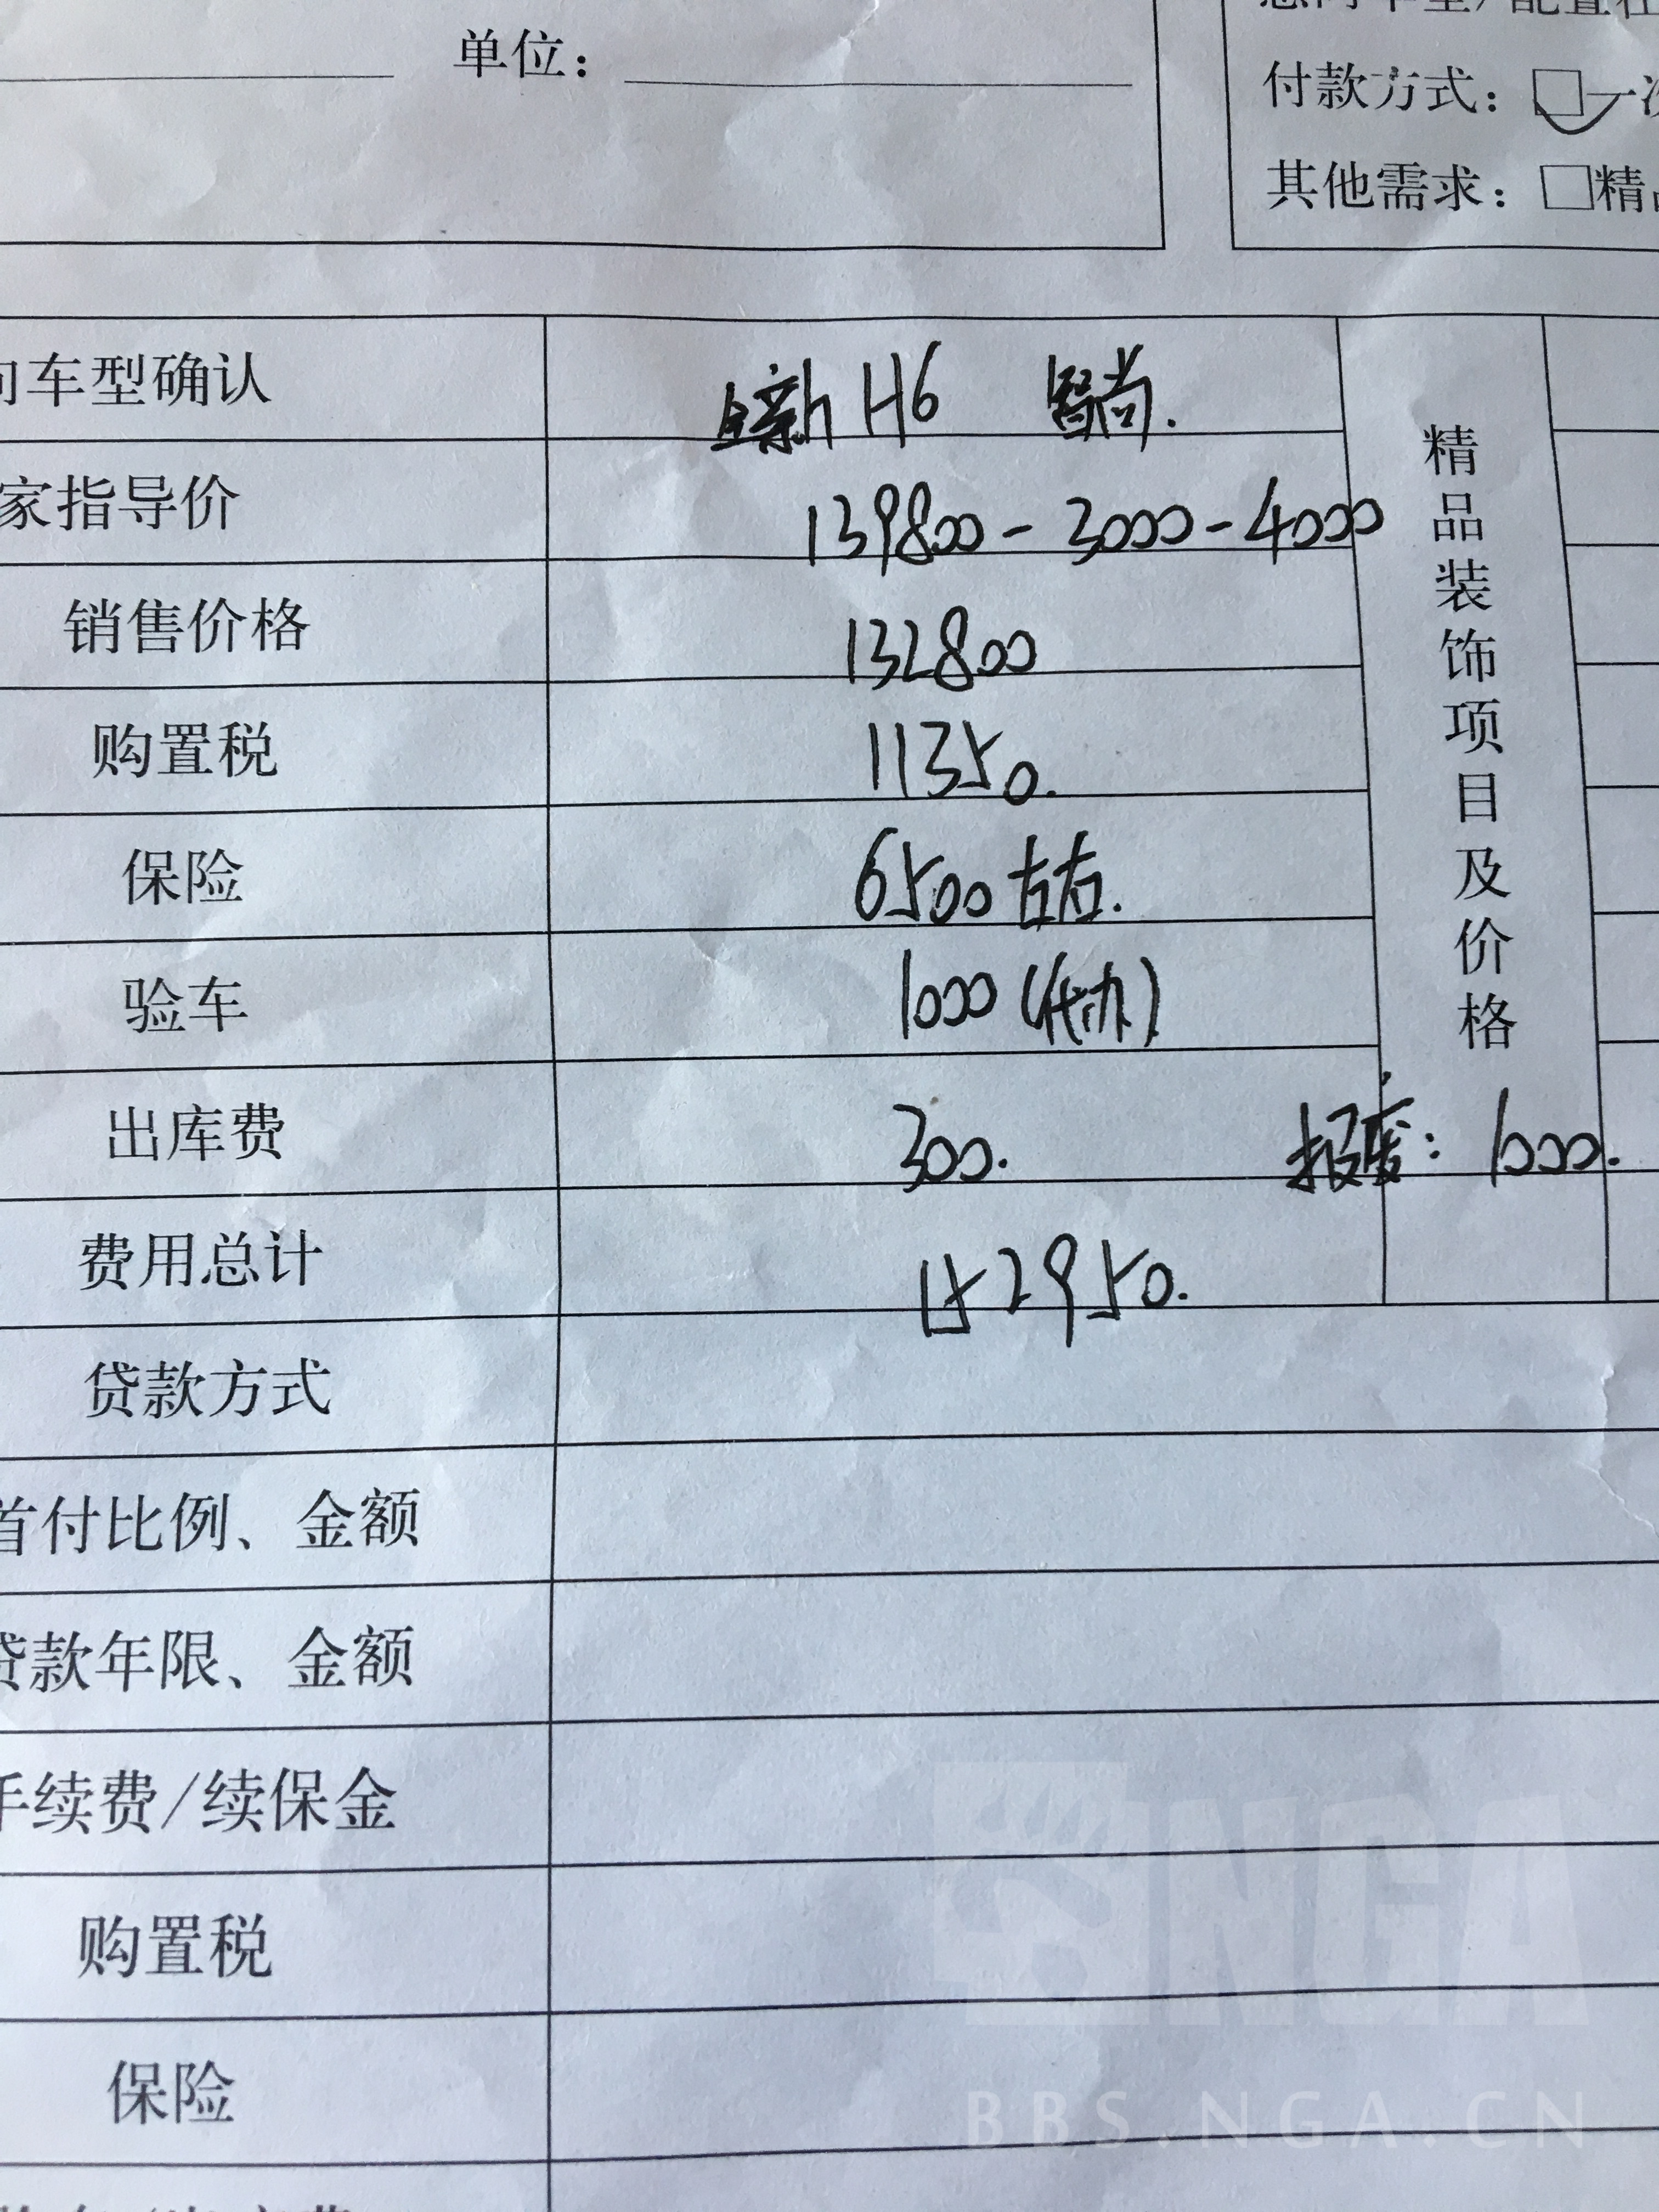 单位：
付款方式：□一次
其他需求：□精品
向车型确认 全新H6 智尚.
家指导价 139800-3000-4000
销售价格 132800
购置税 11350.
保险 6500左右.
验车 1000(代办)
出库费 300.
费用总计 152950.
精品装饰项目及价格
1000.
贷款方式
首付比例、金额
贷款年限、金额
手续费/续保金
购置税
保险
NGA
BBS.NGA.CN